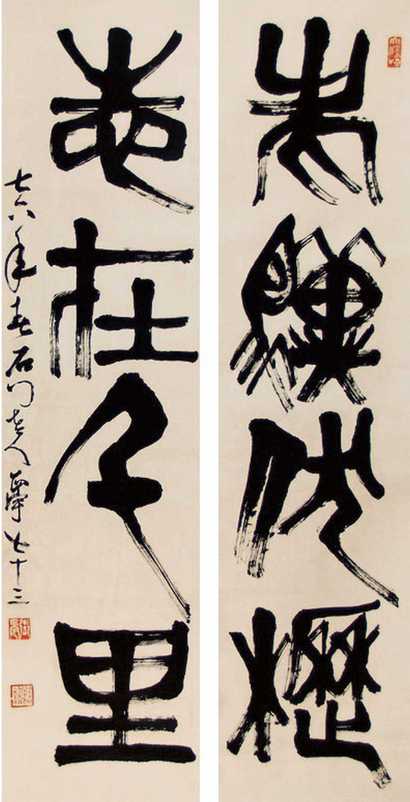 老驥伏櫪
志在千里
七六年春石門老人七十三